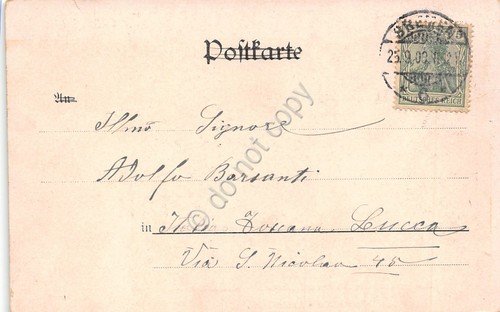 Postkarte
An
Illmo Signore
Adolfo Barsanti
in Italia Toscana Lucca
Via S. Nicolao 45
DEUTSCHES REICH
© do not copy